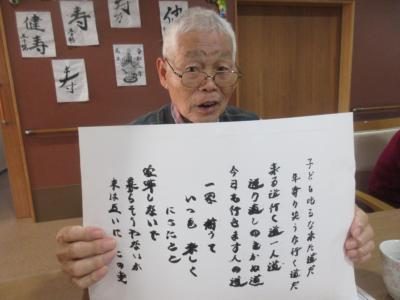 子ども叱るな来た道だ
年寄り笑うな行く道だ
来る道行く道一人道
通り直しのきかぬ道
今日も行きます人の道
一家 揃うて
いつも 楽しく
にこにこと
喧嘩しないで
暮らそうやないか
末は互いに この
健寿
寿
寿
寿